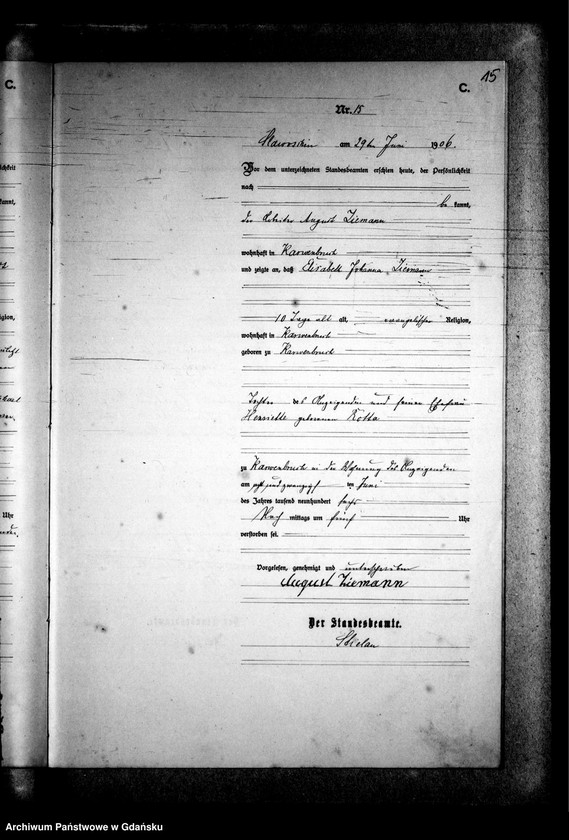 C.
15
C.
Nr. 15
am 29ten Juni 1906.
Vor dem unterzeichneten Standesbeamten erschien heute, der Persönlichkeit
nach
be kannt,
der Arbeiter August Ziemann
wohnhaft in Karwenbruch
und zeigte an, daß Elisabeth Johanna Ziemann
10 Tage alt alt, evangelischer Religion,
wohnhaft in Karwenbruch
geboren zu Karwenbruch
Tochter des Anzeigenden und seiner Ehefrau
Henriette geborenen Kotta
zu Karwenbruch in der Wohnung des Anzeigenden
am acht und zwanzigsten Juni
des Jahres tausend neunhundert sechs
Nach mittags um fünf Uhr
verstorben sei.
Vorgelesen, genehmigt und unterschrieben
August Ziemann
Der Standesbeamte.
Archiwum Państwowe w Gdańsku